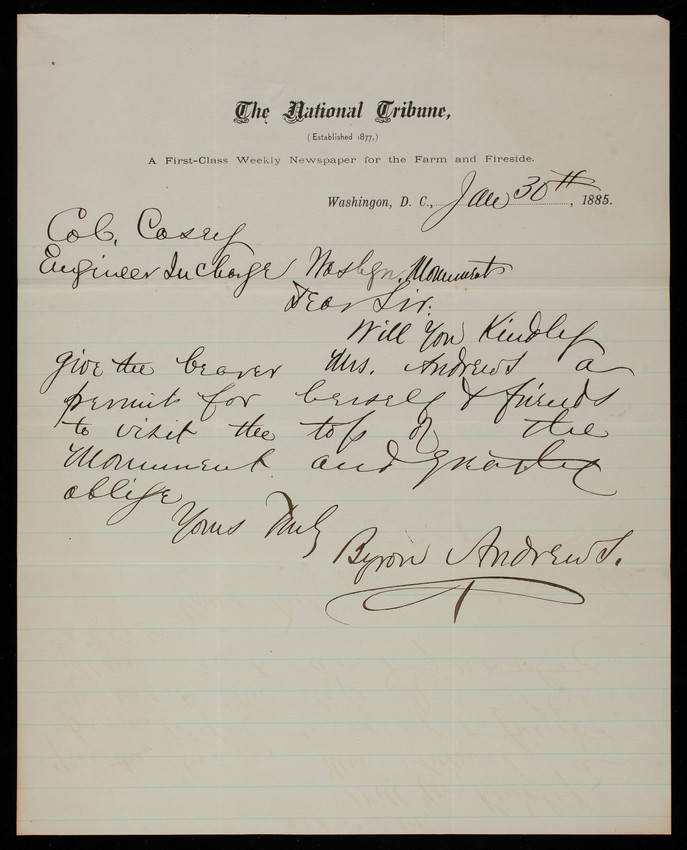 The National Tribune,
(Established 1877.)
A First-Class Weekly Newspaper for the Farm and Fireside.
Washingon, D. C., Jan 30th, 1885.
Col. Casey
Engineer In Charge Washgn. Monument
Dear Sir:
Will you Kindly
give the bearer Mrs. Andrews a
permit for herself & friends
to visit the top of the
Monument and greatly
oblige
Yours Truly
Byron Andrews.